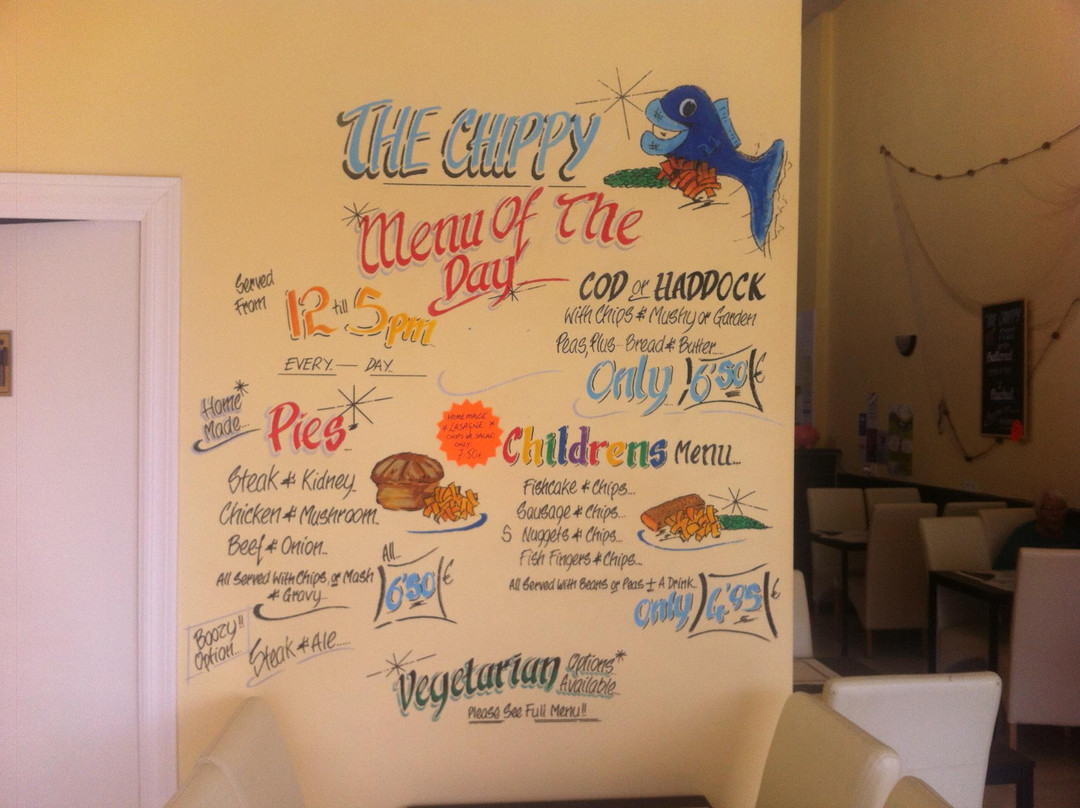 THE CHIPPY
Menu Of The
Day
Served
From
12 till 5pm
EVERY DAY
COD or HADDOCK
With Chips & Mushy or Garden
Peas, Plus Bread & Butter...
Only 6'50 €
Home
Made...
Pies...
Steak & Kidney
Chicken & Mushroom.
Beef & Onion..
All Served With Chips or Mash
& Gravy...
All...
6'50 €
Boozy!!
Option...
Steak & Ale.....
HOMEMADE
LASAGNE
CHIPS OR SALAD
ONLY
7.50
Childrens Menu...
Fishcake & Chips...
Sausage & Chips...
5 Nuggets & Chips...
Fish Fingers & Chips...
All Served With Beans or Peas + A Drink.
only 4'95 €
Vegetarian Options
Available
Please See Full Menu!!
THE CHIPPY